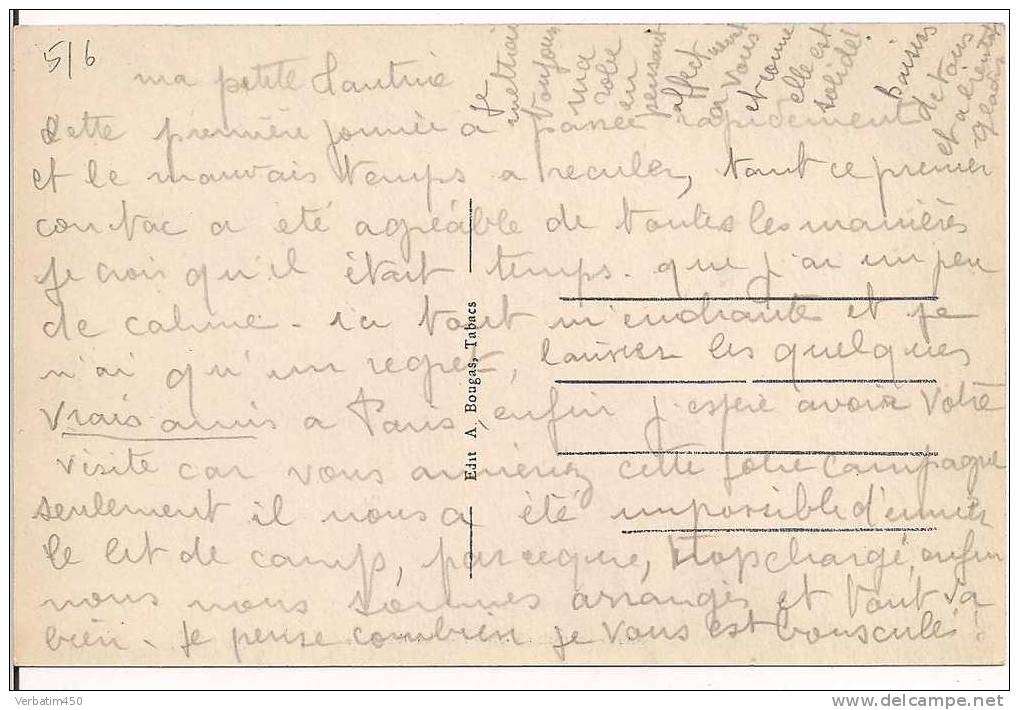 5/6
ma petite
Cette première journée a passée rapidement
et le mauvais temps a reculer, tout ce premier
contac a été agréable de toutes les manières
je crois qu'il était temps que j'ai un peu
de calme - ici tout m'enchante et je
n'ai qu'un regret, laisser les quelques
vrais amis a Paris, enfin j'espère avoir votre
visite car vous aimerez cette jolie campagne
seulement il nous a été impossible d'emmener
le lit de camp, parceque, trop chargé, enfin
nous nous sommes arrangés et tout va
bien - je pense combien je vous est bousculé!
je
mettrai
toujours
ma
robe
en
pensant
affect
a vous
et comme
elle est
solide!
baisers
de tous
et a bientôt
Edit A. Bougas, Tabacs
Verbatim450
delcampe.net